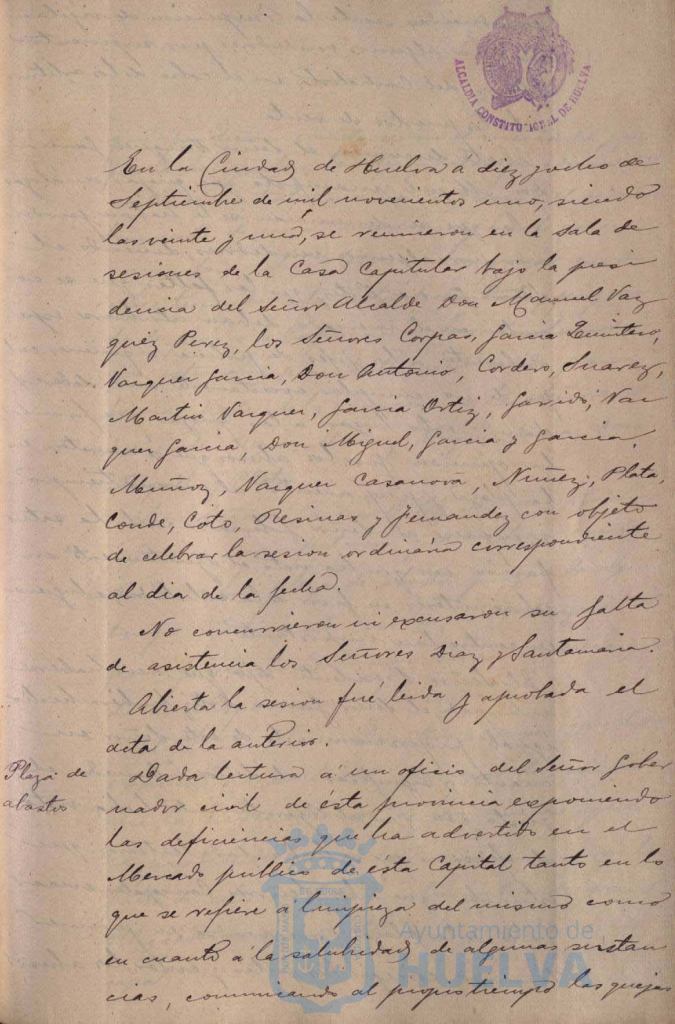 ALCALDIA CONSTITUCIONAL DE HUELVA
En la Ciudad de Huelva á diez y ocho de
Septiembre de mil novecientos uno, siendo
las veinte y una, se reunieron en la Sala de
sesiones de la Casa Capitular bajo la presi
dencia del Señor Alcalde Don Manuel Vaz
quez Perez, los Señores Corpas, Garcia Quintero,
Vazquez Garcia, Don Antonio, Cordero, Suarez,
Martin Vazquez, Garcia Ortiz, Garrido, Vaz
quez Garcia, Don Miguel, Garcia y Garcia,
Muñoz, Vazquez Casanova, Nuñez, Plata,
Conde, Coto, Resinas y Fernandez con objeto
de celebrar la sesion ordinaria correspondiente
al dia de la fecha.
No concurrieron ni excusaron su falta
de asistencia los Señores Diaz y Santamaria.
Abierta la sesion fué leida y aprobada el
acta de la anterior.
Plaza de
abastos
Dada lectura á un oficio del Señor Gober
nador civil de ésta provincia exponiendo
las deficiencias que ha advertido en el
Mercado público de ésta Capital tanto en lo
que se refiere á limpieza del mismo como
en cuanto á la salubridad de algunas sustan
cias, comunicando al propio tiempo las quejas
Ayuntamiento de
HUELVA